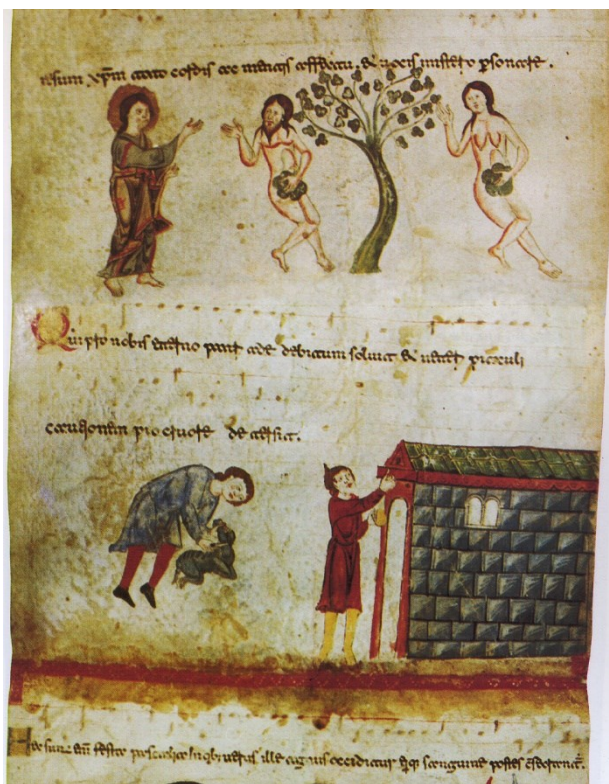 iesum xp̄m toto cordis ac mentis affectu, & uocis misterio p̲sonare.
Qui p̲ro nobis eterno patri ade debitum soluit & ueteris piaculi
cautionem pio cruore detersit.
Hec sunt eni̅ festa paschalia in qbus uerus ille agnus occiditur ei'q; sanguine postes c̅secrant̅.